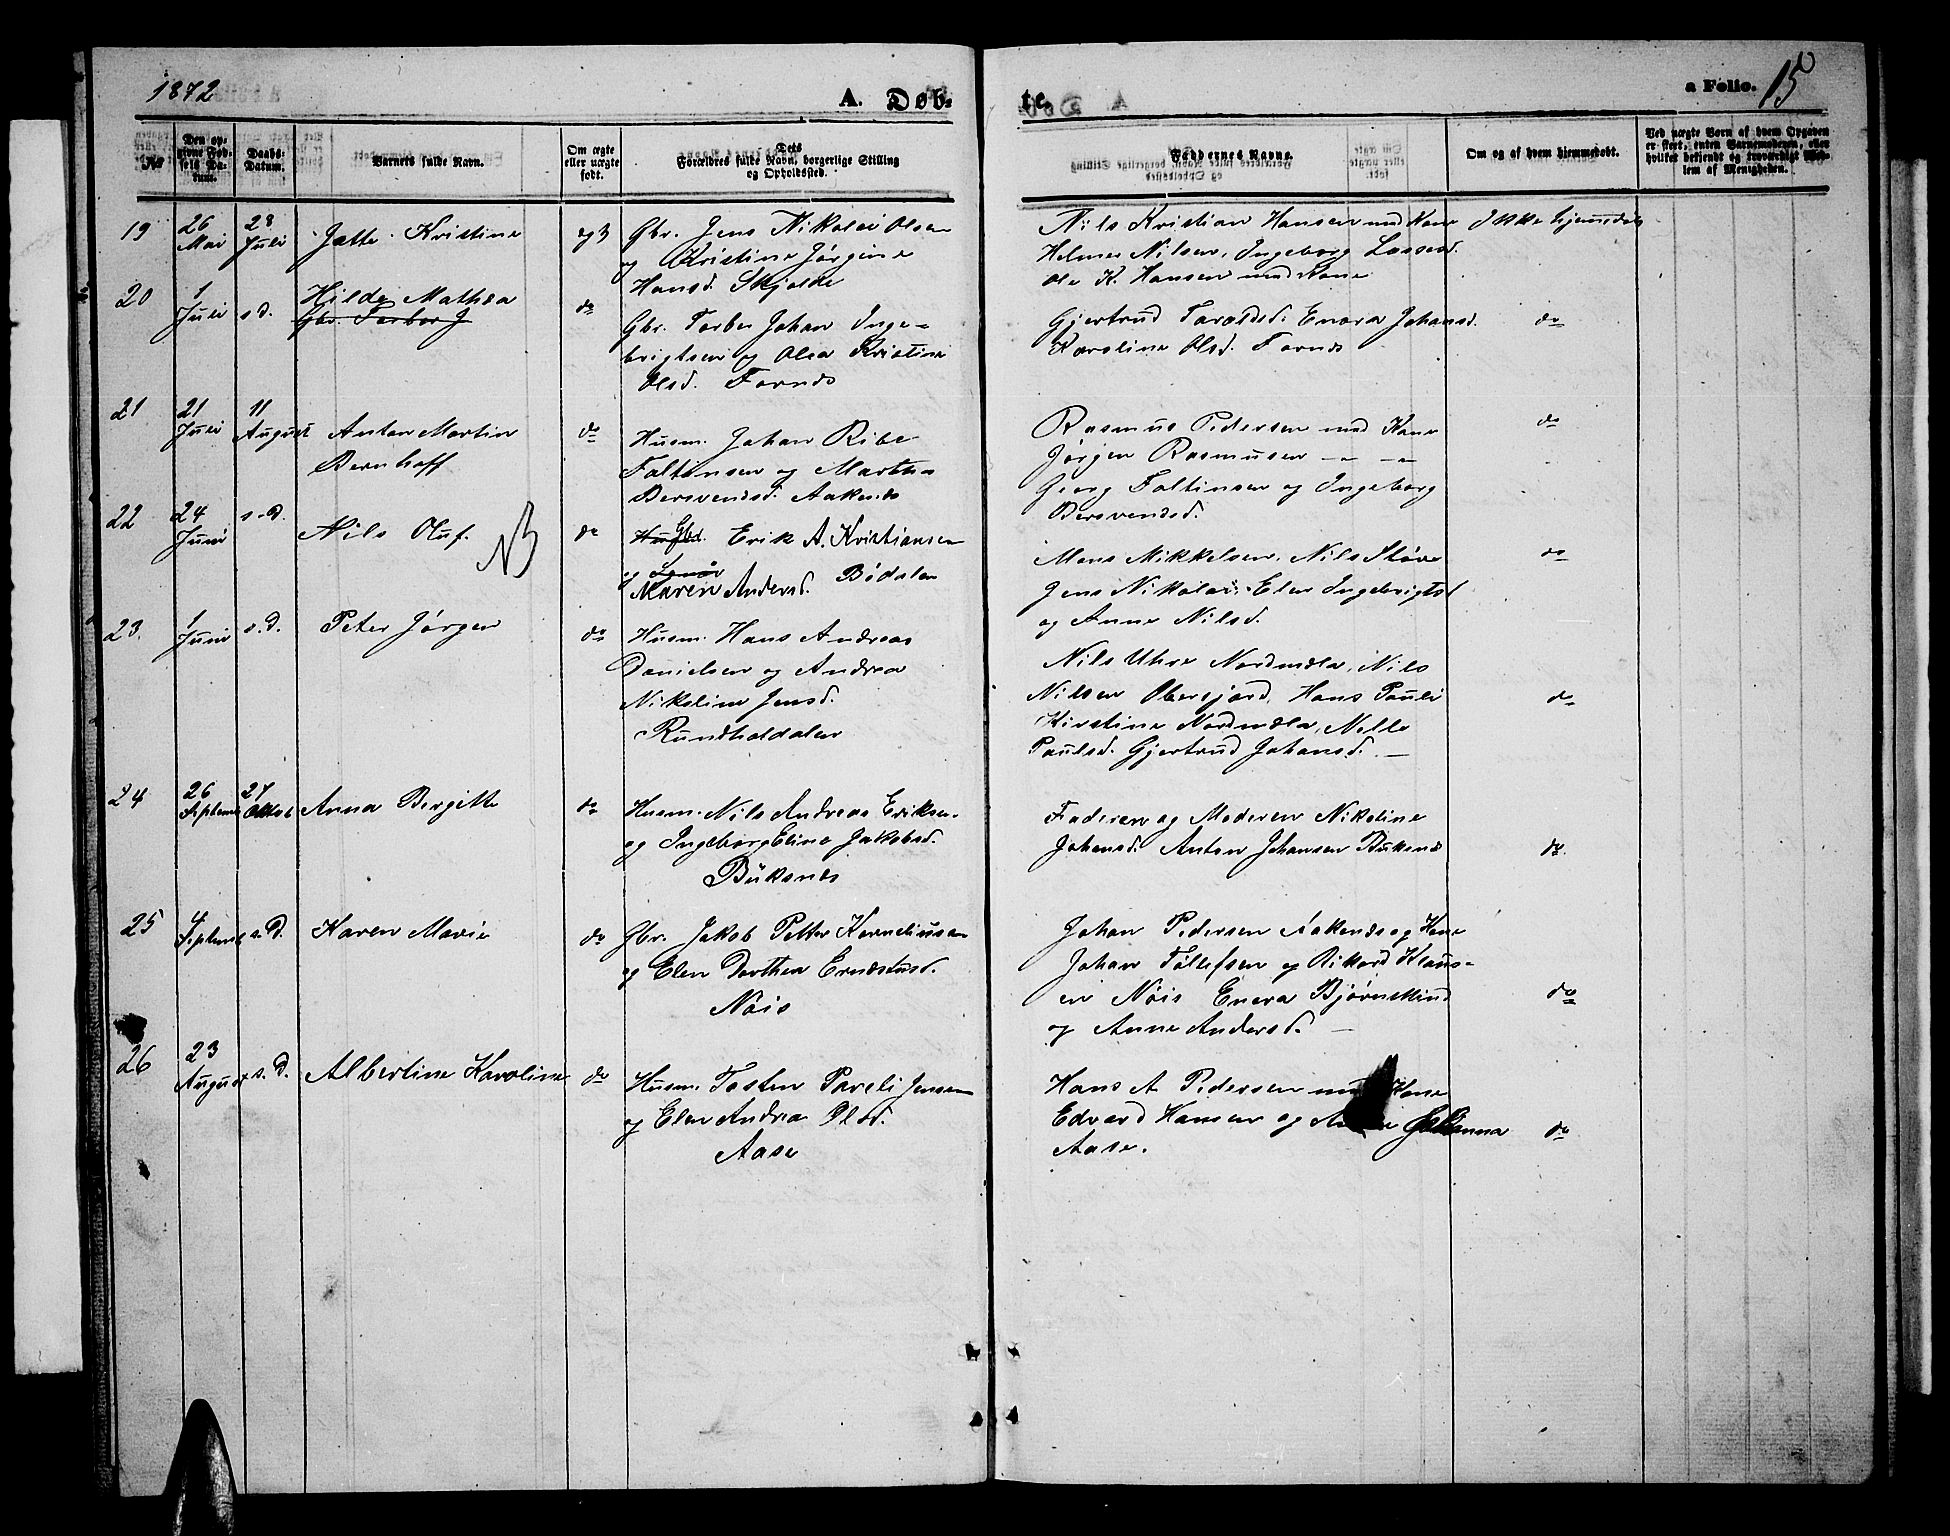 1872
A. Døb-
te.
a Folio. 15
No
Den opgivne Fødsels Datum.
Daabs-Datum.
Barnets fulde Navn.
Om ægte eller uægte født.
Dets Forældres fulde Navn, borgerlige Stilling og Opholdssted.
Faddernes Navne.
Om og af hvem hjemmedøbt.
Ved uægte Børn af hvem Opgaven er skeet, enten Barnemoderen, eller hvilket bekjendt og troværdigt Medlem af Menigheden.
19
26 Mai
28 Juli
Jette Kristine
Gbr. Jens Nikolai Olsen
og Kristine Jørgine
Hansd. Skjolde
Nils Kristian Hansen med Kone
Helmer Nilsen, Ingeborg Lassesd.
Ole K. Hansen med Kone
Ikke hjemmedøbt
20
1 Juli
s.d.
Hilda Mathea
Gbr. Torber J
do
Gbr. Torber Johan Inge-
brigtsen og Olea Kristine
Olsd. Fornæs
Gjertrud Taraldsd. Enora Johansd.
Karoline Olsd. Fornæs
do
21
21 Juli
11 August
Anton Martin
Bernhoff
do
Husm. Johan Ribe
Faltinsen og Martha
Bersvendsd. Aaknæs
Rasmus Pedersen med Kone
Jørgen Rasmusen — " — "
Georg Faltinsen og Ingeborg
Bersvendsd.
do
22
24 Juni
s.d.
Nils Oluf.
NB
do
Husm. Gbd. Erik A. Kristiansen
og Maren Andersd. Bødalen
Mons Mikkelsen, Nils Støre
Jens Nikolai, Elen Ingebrigtsd
og Anne Nilsd.
do
23.
1 Juni
s.d.
Peter Jørgen
do
Husm. Hans Andreas
Danielsen og Andrea
Nikoline Jensd.
Rundholdalen
Nils Uhre Nordmæla, Nils
Nilsen Obersjord, Hans Pauli
Kirstine Nordmæla, Nelle
Paulsd. Gjertrud Johansd. —
do
24
26 Septemb
27 Oktob
Anna Bergitte
do
Husm. Nils Andreas Eriksen
og Ingeborg Eline Jakobsd.
Buksnæs
Faderen og Moderen Nikoline
Johansd. Anton Johansen Buksnæs
do.
25
4 Septemb
s.d.
Karen Marie
do
Gbr. Jakob Petter Korneliusen
og Elen Dorthea Ernstusd.
Nøis
Johan Pedersen Aaknæs og Kone
Johan Tollefsen og Rikard Klaus-
en Nøis Enera Bjørnskind
og Anne Andersd. —
do
26
23 August
s.d.
Albertine Karoline
do
Husm. Tosten Pareli Jensen
og Elen Andrea Olsd.
Aase
Hans A Pedersen med Kone
Edvard Hansen og Johanna
Aase.
do